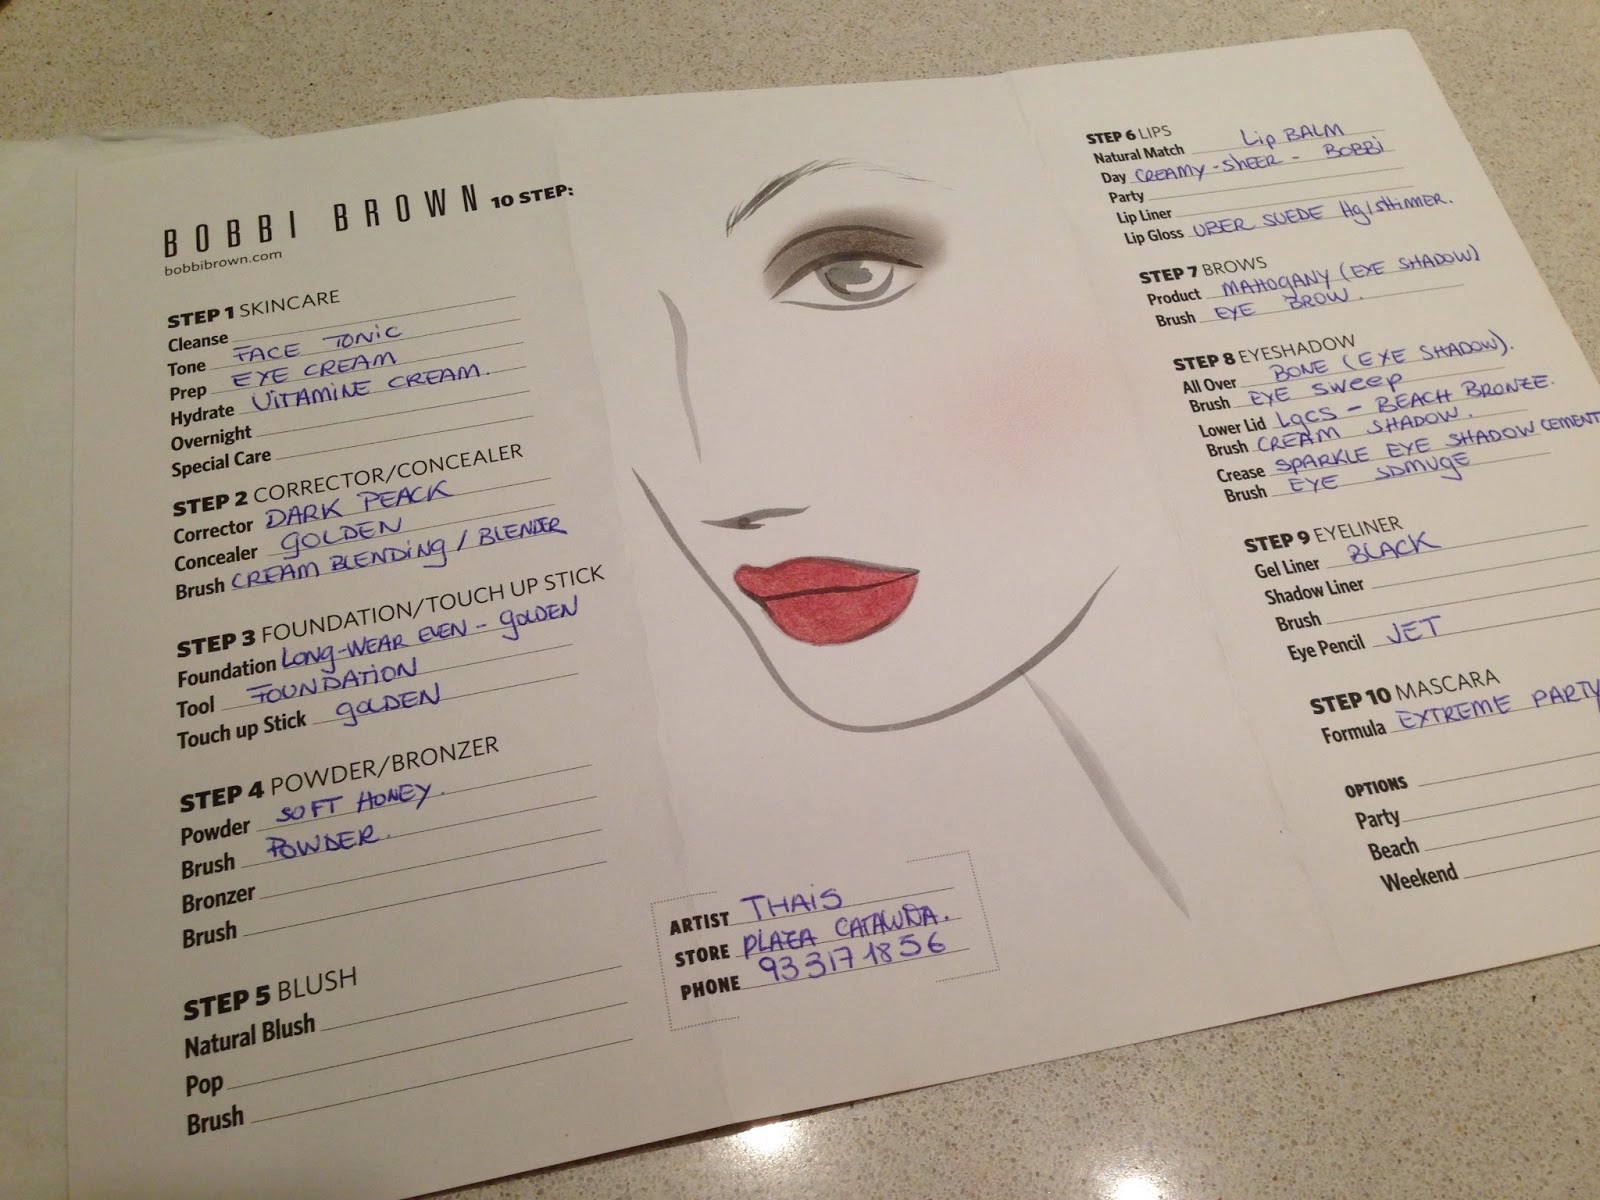 BOBBI BROWN 10 STEP:
bobbibrown.com
STEP 1 SKINCARE
Cleanse
Tone FACE TONIC
Prep EYE CREAM
Hydrate VITAMINE CREAM.
Overnight
Special Care
STEP 2 CORRECTOR/CONCEALER
Corrector DARK PEACK
Concealer GOLDEN
Brush CREAM BLENDING / BLENDER
STEP 3 FOUNDATION/TOUCH UP STICK
Foundation LONG-WEAR EVEN - GOLDEN
Tool FOUNDATION
Touch up Stick GOLDEN
STEP 4 POWDER/BRONZER
Powder SOFT HONEY.
Brush POWDER.
Bronzer
Brush
STEP 5 BLUSH
Natural Blush
Pop
Brush
ARTIST THAIS
STORE PLAZA CATALUÑA.
PHONE 93 317 1856
STEP 6 LIPS
Natural Match Lip BALM
Day CREAMY - SHEER - BOBBI
Party
Lip Liner
Lip Gloss UBER SUEDE Hg/SHIMMER.
STEP 7 BROWS
Product MAHOGANY (EYE SHADOW)
Brush EYE BROW.
STEP 8 EYESHADOW
All Over BONE (EYE SHADOW).
Brush EYE SWEEP
Lower Lid LQCS - BEACH BRONZE.
Brush CREAM SHADOW.
Crease SPARKLE EYE SHADOW CEMENT
Brush EYE SDMUGE
STEP 9 EYELINER
Gel Liner BLACK
Shadow Liner
Brush
Eye Pencil JET
STEP 10 MASCARA
Formula EXTREME PARTY
OPTIONS
Party
Beach
Weekend